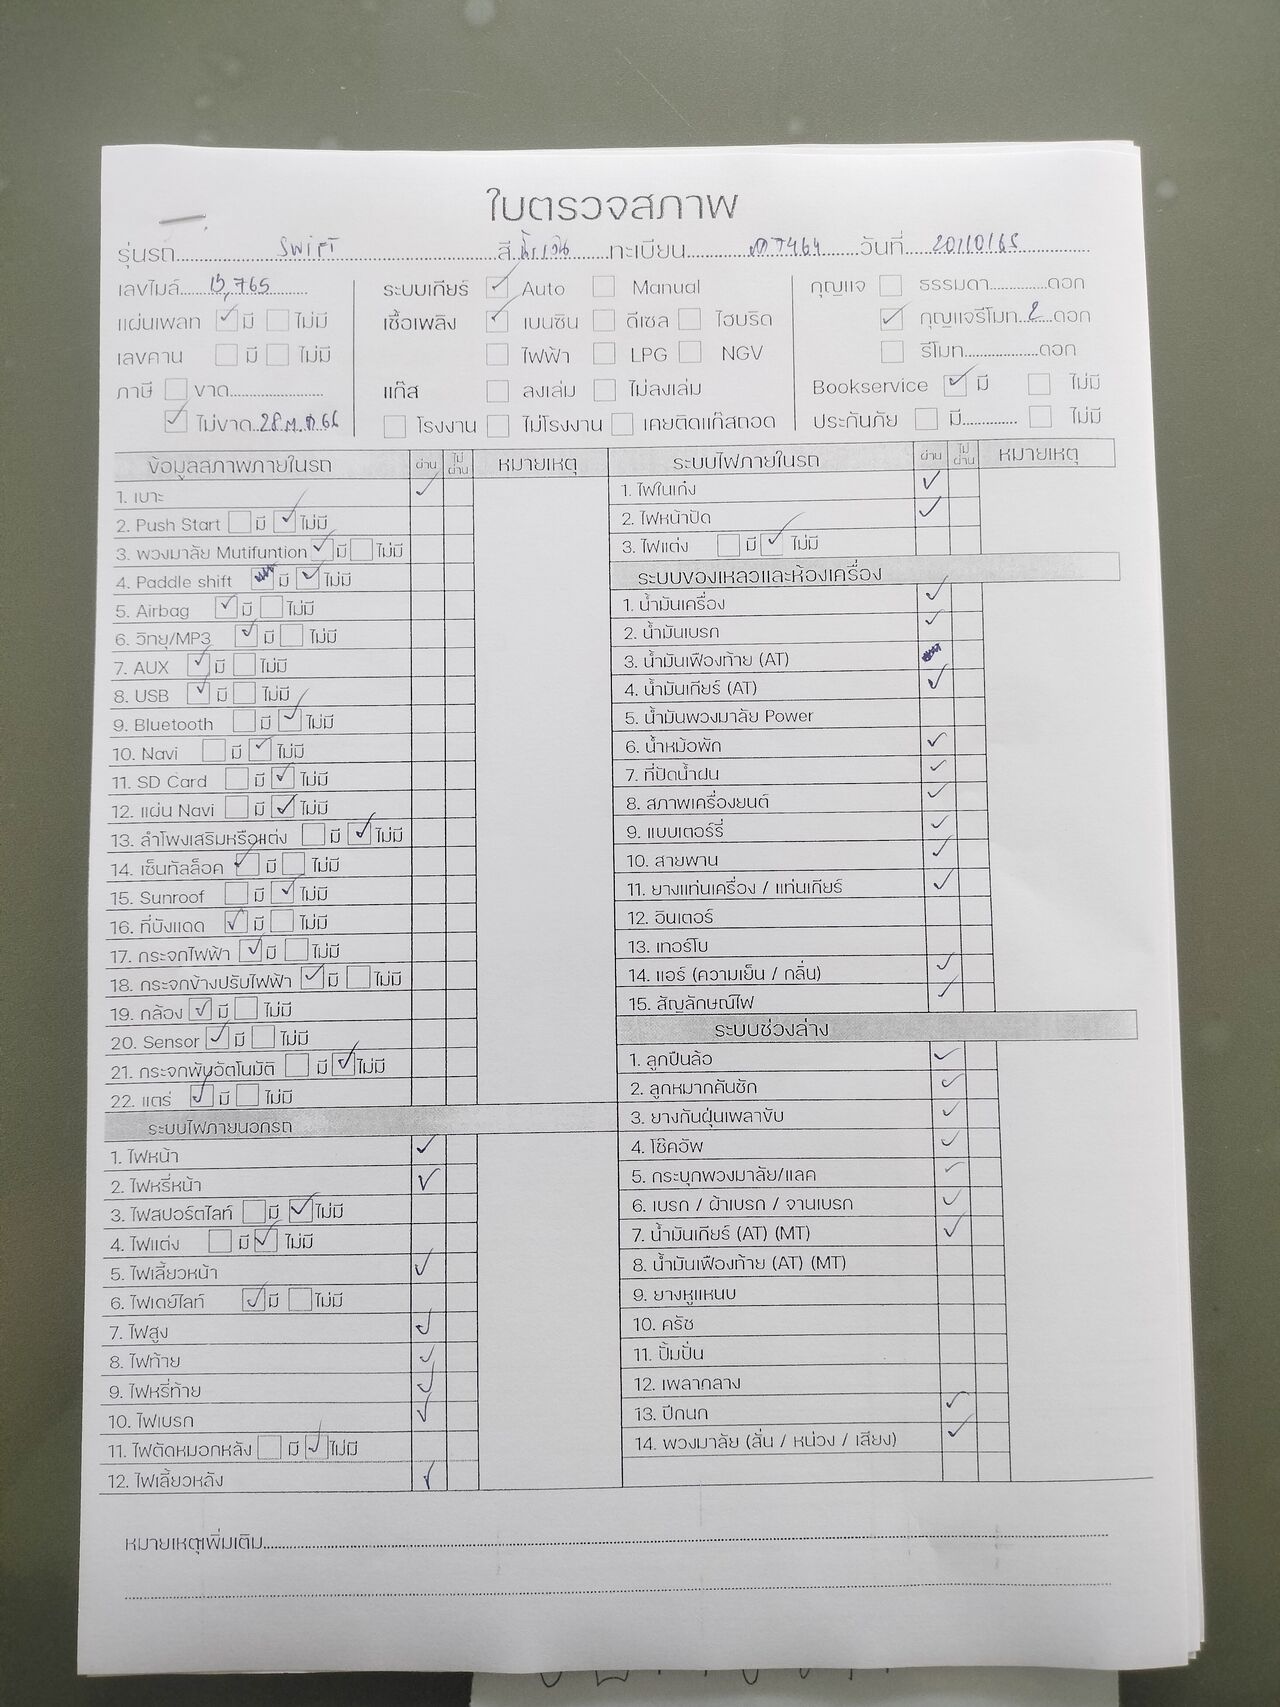 ใบตรวจสภาพ
รุ่นรถ SWIFT สี น้ำเงิน ทะเบียน 7464 วันที่ 20/10/65
เลขไมล์ ,765 ระบบเกียร์ Auto Manual กุญแจ ธรรมดา ดอก
แผ่นเพลท มี ไม่มี เชื้อเพลิง เบนซิน ดีเซล ไฮบริด กุญแจรีโมท 2 ดอก
เลขคาน มี ไม่มี ไฟฟ้า LPG NGV รีโมท ดอก
ภาษี ขาด แก๊ส ลงเล่ม ไม่ลงเล่ม Bookservice มี ไม่มี
ไม่ขาด 28 ต.ค 66 โรงงาน ไม่โรงงาน เคยติดแก๊สถอด ประกันภัย มี ไม่มี
ข้อมูลสภาพภายในรถ ผ่าน ไม่ผ่าน หมายเหตุ ระบบไฟภายในรถ ผ่าน ไม่ผ่าน หมายเหตุ
1. เบาะ
2. Push Start มี ไม่มี
3. พวงมาลัย Mutifuntion มี ไม่มี
4. Paddle shift มี ไม่มี
5. Airbag มี ไม่มี
6. วิทยุ/MP3 มี ไม่มี
7. AUX มี ไม่มี
8. USB มี ไม่มี
9. Bluetooth มี ไม่มี
10. Navi มี ไม่มี
11. SD Card มี ไม่มี
12. แผ่น Navi มี ไม่มี
13. ลำโพงเสริมหรือแต่ง มี ไม่มี
14. เซ็นทัลล็อค มี ไม่มี
15. Sunroof มี ไม่มี
16. ที่บังแดด มี ไม่มี
17. กระจกไฟฟ้า มี ไม่มี
18. กระจกข้างปรับไฟฟ้า มี ไม่มี
19. กล้อง มี ไม่มี
20. Sensor มี ไม่มี
21. กระจกพับอัตโนมัติ มี ไม่มี
22. แตร่ มี ไม่มี
ระบบไฟภายนอกรถ
1. ไฟหน้า
2. ไฟหรี่หน้า
3. ไฟสปอร์ตไลท์ มี ไม่มี
4. ไฟแต่ง มี ไม่มี
5. ไฟเลี้ยวหน้า
6. ไฟเดย์ไลท์ มี ไม่มี
7. ไฟสูง
8. ไฟท้าย
9. ไฟหรี่ท้าย
10. ไฟเบรก
11. ไฟตัดหมอกหลัง มี ไม่มี
12. ไฟเลี้ยวหลัง
1. ไฟในเก๋ง
2. ไฟหน้าปัด
3. ไฟแต่ง มี ไม่มี
ระบบของเหลวและห้องเครื่อง
1. น้ำมันเครื่อง
2. น้ำมันเบรก
3. น้ำมันเฟืองท้าย (AT)
4. น้ำมันเกียร์ (AT)
5. น้ำมันพวงมาลัย Power
6. น้ำหม้อพัก
7. ที่ปัดน้ำฝน
8. สภาพเครื่องยนต์
9. แบบเตอร์รี่
10. สายพาน
11. ยางแท่นเครื่อง / แท่นเกียร์
12. อินเตอร์
13. เทอร์โบ
14. แอร์ (ความเย็น / กลิ่น)
15. สัญลักษณ์ไฟ
ระบบช่วงล่าง
1. ลูกปืนล้อ
2. ลูกหมากคันชัก
3. ยางกันฝุ่นเพลาขับ
4. โช๊คอัพ
5. กระบุกพวงมาลัย/แลค
6. เบรก / ผ้าเบรก / จานเบรก
7. น้ำมันเกียร์ (AT) (MT)
8. น้ำมันเฟืองท้าย (AT) (MT)
9. ยางหูแหนบ
10. ครัช
11. ปั้มปั่น
12. เพลากลาง
13. ปีกนก
14. พวงมาลัย (สั่น / หน่วง / เสียง)
หมายเหตุเพิ่มเติม